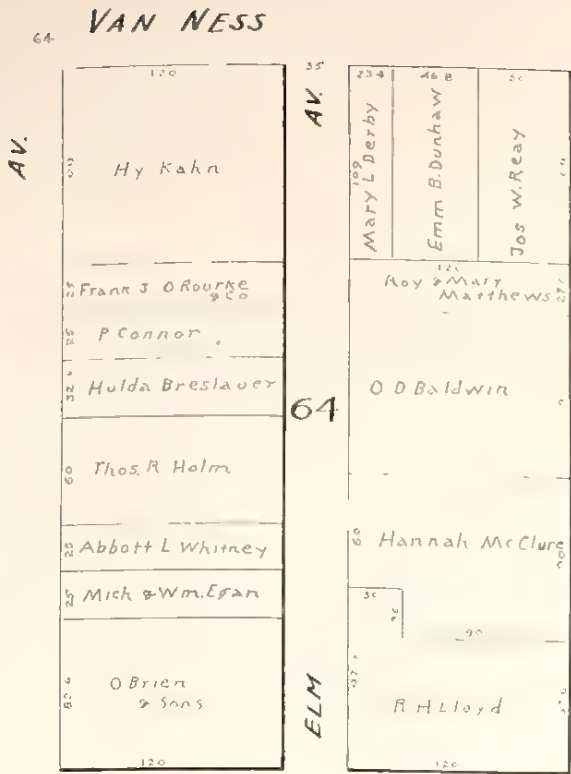 64
VAN NESS
AV.
120
Hy Kahn
25
Frank J O Rourke
& Co
25
P Connor
32 6
Hulda Breslauer
60
Thos. R Holm
25
Abbott L Whitney
25
Mich & Wm. Egan
82 6
O Brien
& Sons
120
35
AV.
64
ELM
23 4
46 8
50
109
Mary L Derby
Emm B. Dunhaw
Jos W. Reay
120
Roy & Mary
Matthews
O D Baldwin
60
Hannah McClure
30
90
R H Lloyd
120